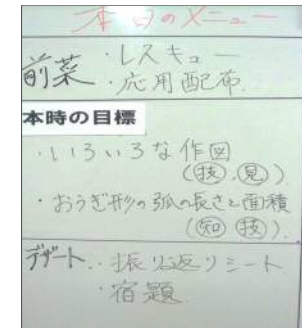 本日のメニュー
前菜 ・レスキュー
・応用配布
本時の目標
・いろいろな作図
(技,見)
・おうぎ形の弧の長さと面積
(知 技)
デザート ・振り返りシート
・宿題